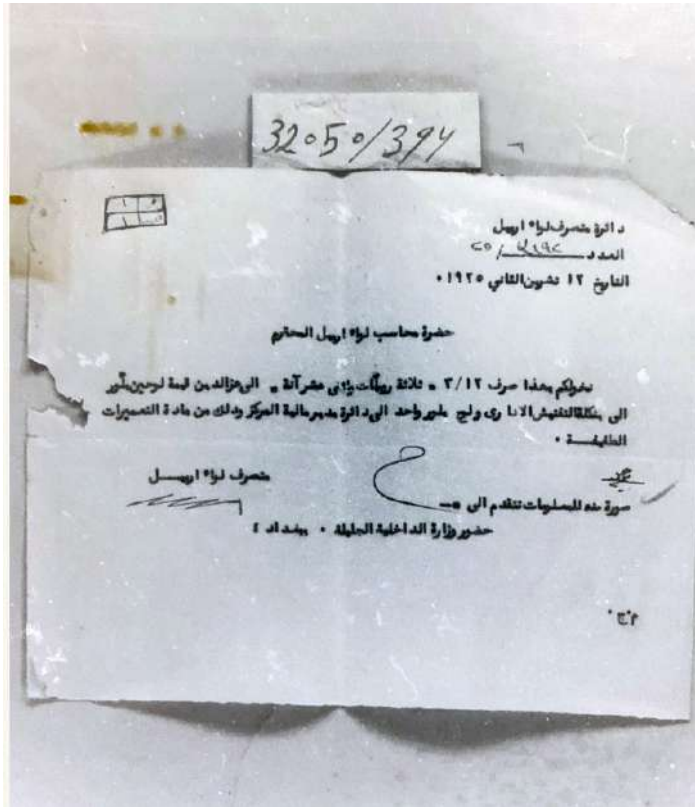 32050/394
دائرة متصرف لواء اربيل
العدد
التاريخ ١٢ تشرين الثاني ١٩٢٥ ·
حضرة محاسب لواء اربيل المحترم
نخولكم بهذا صرف ٣/١٢ " ثلاثة روبيات واثني عشر آنة " الى عزالدين قيمة لوحين بلّور
الى التفتيش الاداري ولوح بلور واحد الى دائرة مدير مالية المركز وذلك من مادة التعميرات
الطفيفـــة ·
متصرف لواء اربيـــل
صورة منه للمعلومات تتقدم الى :ـــ
حضور وزارة الداخلية الجليلة · بغداد ٤
م·ج ·